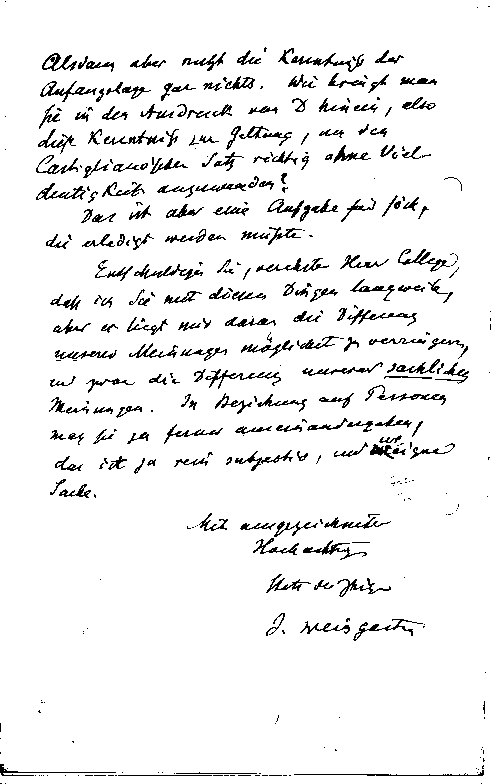 Alsdann aber nutzt die Kenntniß der
Anfangslage gar nichts. Wie bringt man
sie in den Ausdruck von D hinein, also
diese Kenntniß zur Geltung, um den
Castiglianoschen Satz richtig ohne Viel
deutigkeit anzuwenden?
Das ist aber eine Aufgabe für sich,
die erledigt werden müßte.
Entschuldigen Sie, verehrter Herr College,
daß ich Sie mit diesen Dingen langweile,
aber es liegt mir daran die Differenz
unserer Meinungen möglichst zu verringern,
und zwar die Differenz unserer sachlichen
Meinungen. In Beziehung auf Personen
mag sie ja ferner auseinandergehen,
das ist ja rein subjectiv, und eigne
Sache.
Mit ausgezeichneter
Hochachtung
Stets der Ihrige
J. Weingarten